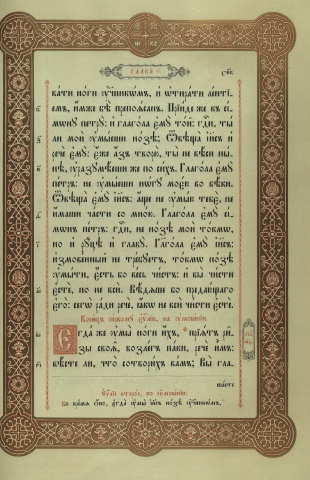 ГЛАВА
вати ноги ᲂу҆чн҃кѡмъ, и҆ ѡ҆тирати ле́нтї-
емъ, и҆́мже бѣ̀ препоѧ́санъ. Прїи́де же къ сі́-
мѡнꙋ петрꙋ̀: и҆ глаго́ла є҆мꙋ̀ то́й: гдⷭ҇и, ты́
ли моѝ ᲂу҆мы́еши но́зѣ; Ѿвѣща̀ і҆и҃съ и҆
речѐ є҆мꙋ̀: є҆́же а҆́зъ творю̀, ты̀ не вѣ́си ны́-
нѣ, ᲂу҆разꙋмѣ́еши же по си́хъ. Глаго́ла є҆мꙋ̀
пе́тръ: не ᲂу҆мы́еши но́гꙋ моє́ю во вѣ́ки.
Ѿвѣща̀ є҆мꙋ̀ і҆и҃съ: а҆́ще не ᲂу҆мы́ю тебѐ, не
и҆́маши ча́сти со мно́ю. Глаго́ла є҆мꙋ̀ сі́-
мѡнъ пе́тръ: гдⷭ҇и, не но́зѣ моѝ то́кмѡ,
но и҆ рꙋ́цѣ и҆ главꙋ̀. Глаго́ла є҆мꙋ̀ і҆и҃съ:
и҆змове́нный не тре́бꙋетъ, то́кмѡ но́зѣ
ᲂу҆мы́ти, є҆́сть бо ве́сь чи́стъ: и҆ вы̀ чи́сти
є҆стѐ, но не всѝ. Вѣ́дѧше бо предаю́щаго
є҆го̀: сегѡ̀ ра́ди речѐ, ꙗ҆́кѡ не всѝ чи́сти є҆стѐ.
Коне́цъ пе́рвомꙋ є҆ѵⷢ҇лїю, на ᲂу҆мове́нїи.
Є҆гда́ же ᲂу҆мы̀ но́ги и҆́хъ, прїѧ́тъ ри̑-
зы своѧ̑, возле́гъ па́ки, речѐ и҆̀мъ:
вѣ́сте ли, что̀ сотвори́хъ ва́мъ; Вы̀ гла-
шаете
Є҆ѵⷢ҇лїе второ́е, по ᲂу҆мове́нїи:
во вре́мѧ ѻ҆́но, є҆гда̀ ᲂу҆мы̀ і҆и҃съ но́зѣ ᲂу҆чн҃кѡмъ,